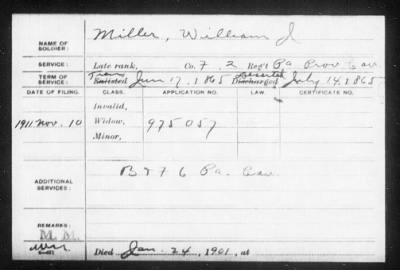 NAME OF SOLDIER: Miller, William J
SERVICE: Late rank, Co. F. 2 Reg't Pa Prov Cav
TERM OF SERVICE: Tran Enlisted Jun 17, 1865 Deserted Discharged July 14, 1865
DATE OF FILING. CLASS. APPLICATION NO. LAW. CERTIFICATE NO.
Invalid,
1911 Nov. 10 Widow, 975057
Minor,
ADDITIONAL SERVICES: B & F 6 Pa. Cav.
REMARKS:
Died Jan. 24, 1901, at